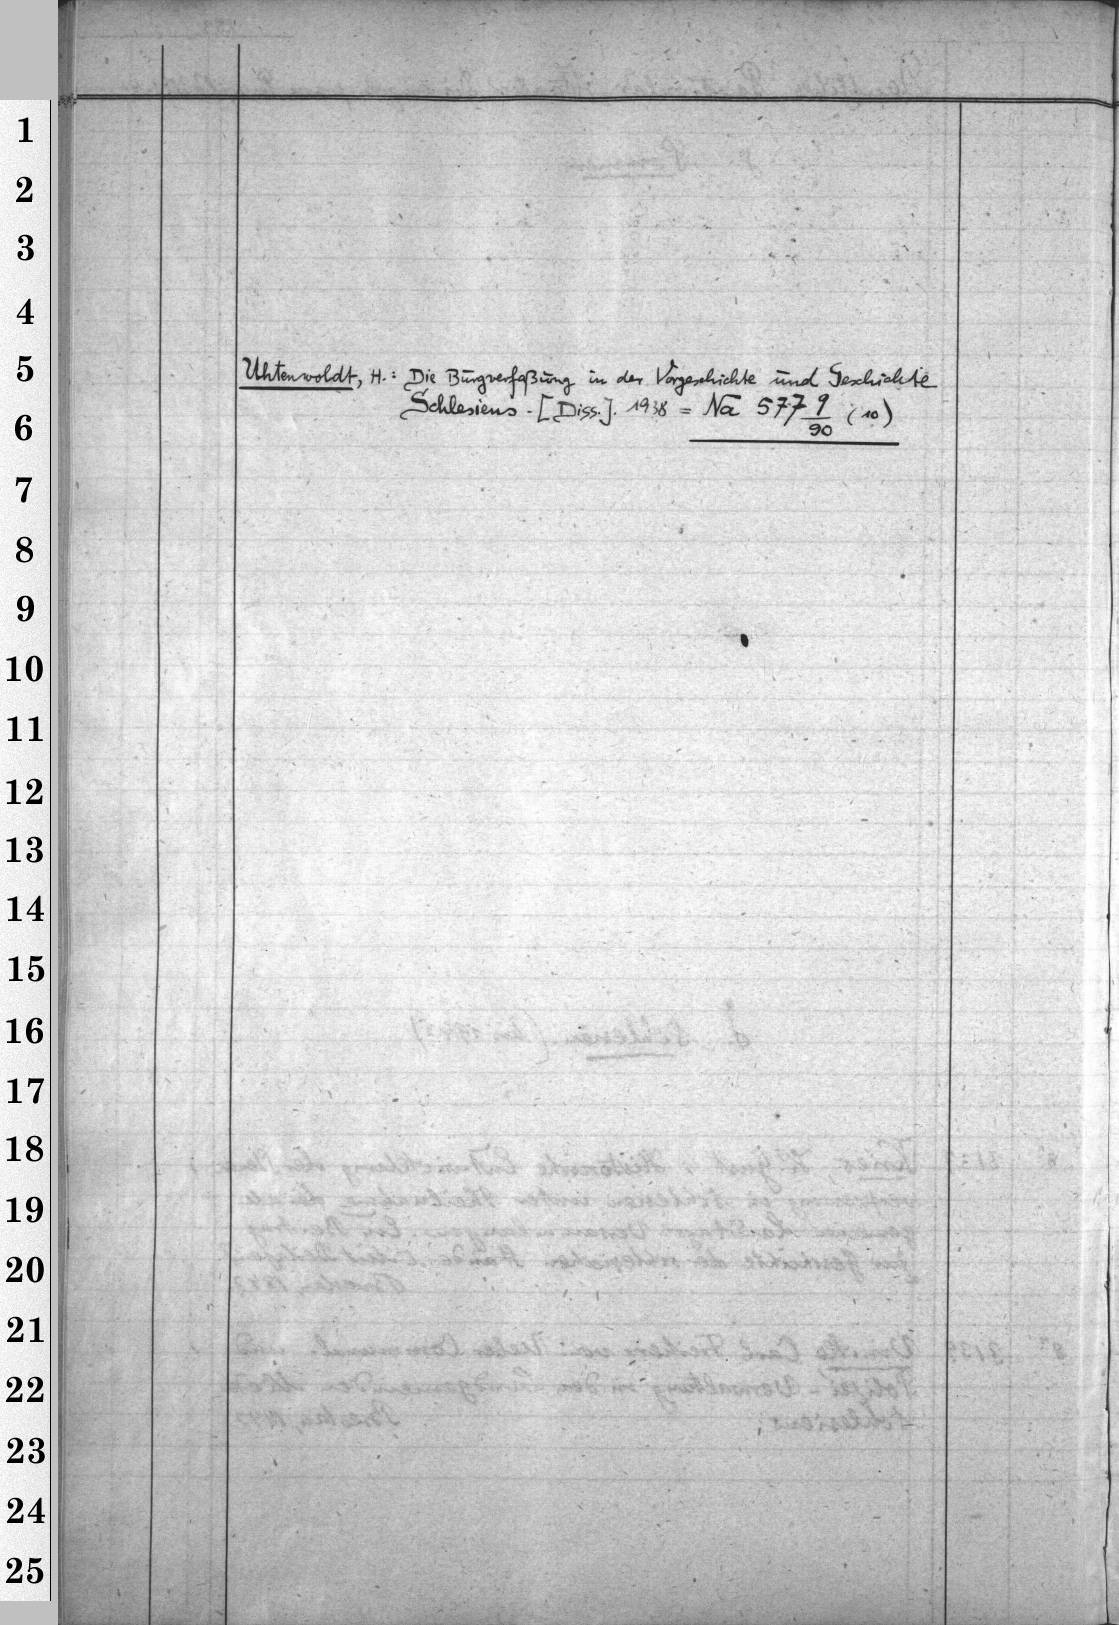 1
2
3
4
5
Uhtenwoldt, H.: Die Burgverfaßung in der Vorgeschichte und Geschichte
Schlesiens. [Diss.]. 1938 = Na 577 9/90 (10)
6
7
8
9
10
11
12
13
14
15
16
17
18
19
20
21
22
23
24
25